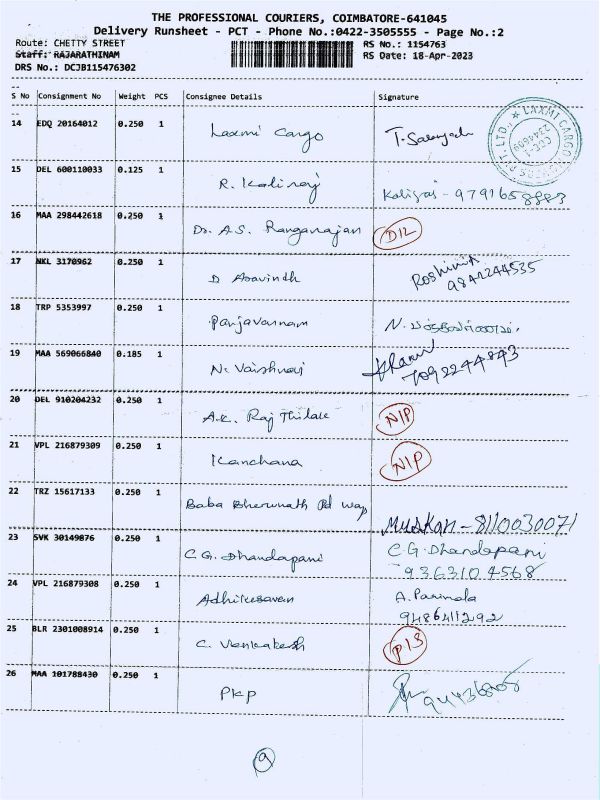 THE PROFESSIONAL COURIERS, COIMBATORE-641045
Delivery Runsheet - PCT - Phone No.:0422-3505555 - Page No.:2
Route: CHETTY STREET RS No.: 1154763
Staff: RAJARATHINAM RS Date: 18-Apr-2023
DRS No.: DCJB115476302
S No Consignment No Weight PCS Consignee Details Signature
14 EDQ 20164012 0.250 1 Laxmi Cargo
LAXMI CARGO
15 DEL 600110033 0.125 1 R. Kaliraj Kaliraj - 9791658883
16 MAA 298442618 0.250 1 Dr. A.S. Ranganajan D12
17 NKL 3170962 0.250 1 D Aravindh Roshini
9842244535
18 TRP 5353997 0.250 1 Panjavarnam N.
19 MAA 569066840 0.185 1 N. Vaishnavi
7092244843
20 DEL 910204232 0.250 1 A.K. Raj Thilak N/P
21 VPL 216879309 0.250 1 Kanchana N/P
22 TRZ 15617133 0.250 1 Baba Bherunath Pd Muskan - 8110030071
23 SVK 30149876 0.250 1 C.G. Dhandapani C.G. Dhandapani
9363104568
24 VPL 216879308 0.250 1 Adhikesavan A. Parimala
9486411292
25 BLR 2301008914 0.250 1 C. Venkatesh P/S
26 MAA 101788430 0.250 1 PKP
9